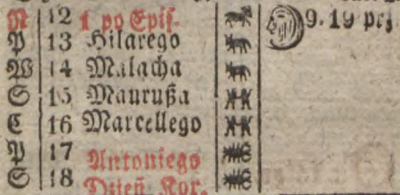 N 12 1 po Epif. 9. 19 prz
P 13 Hilarego
W 14 Malacha
S 15 Maurußa
C 16 Marcellego
P 17 Antoniego
S 18 Dzień Kor.